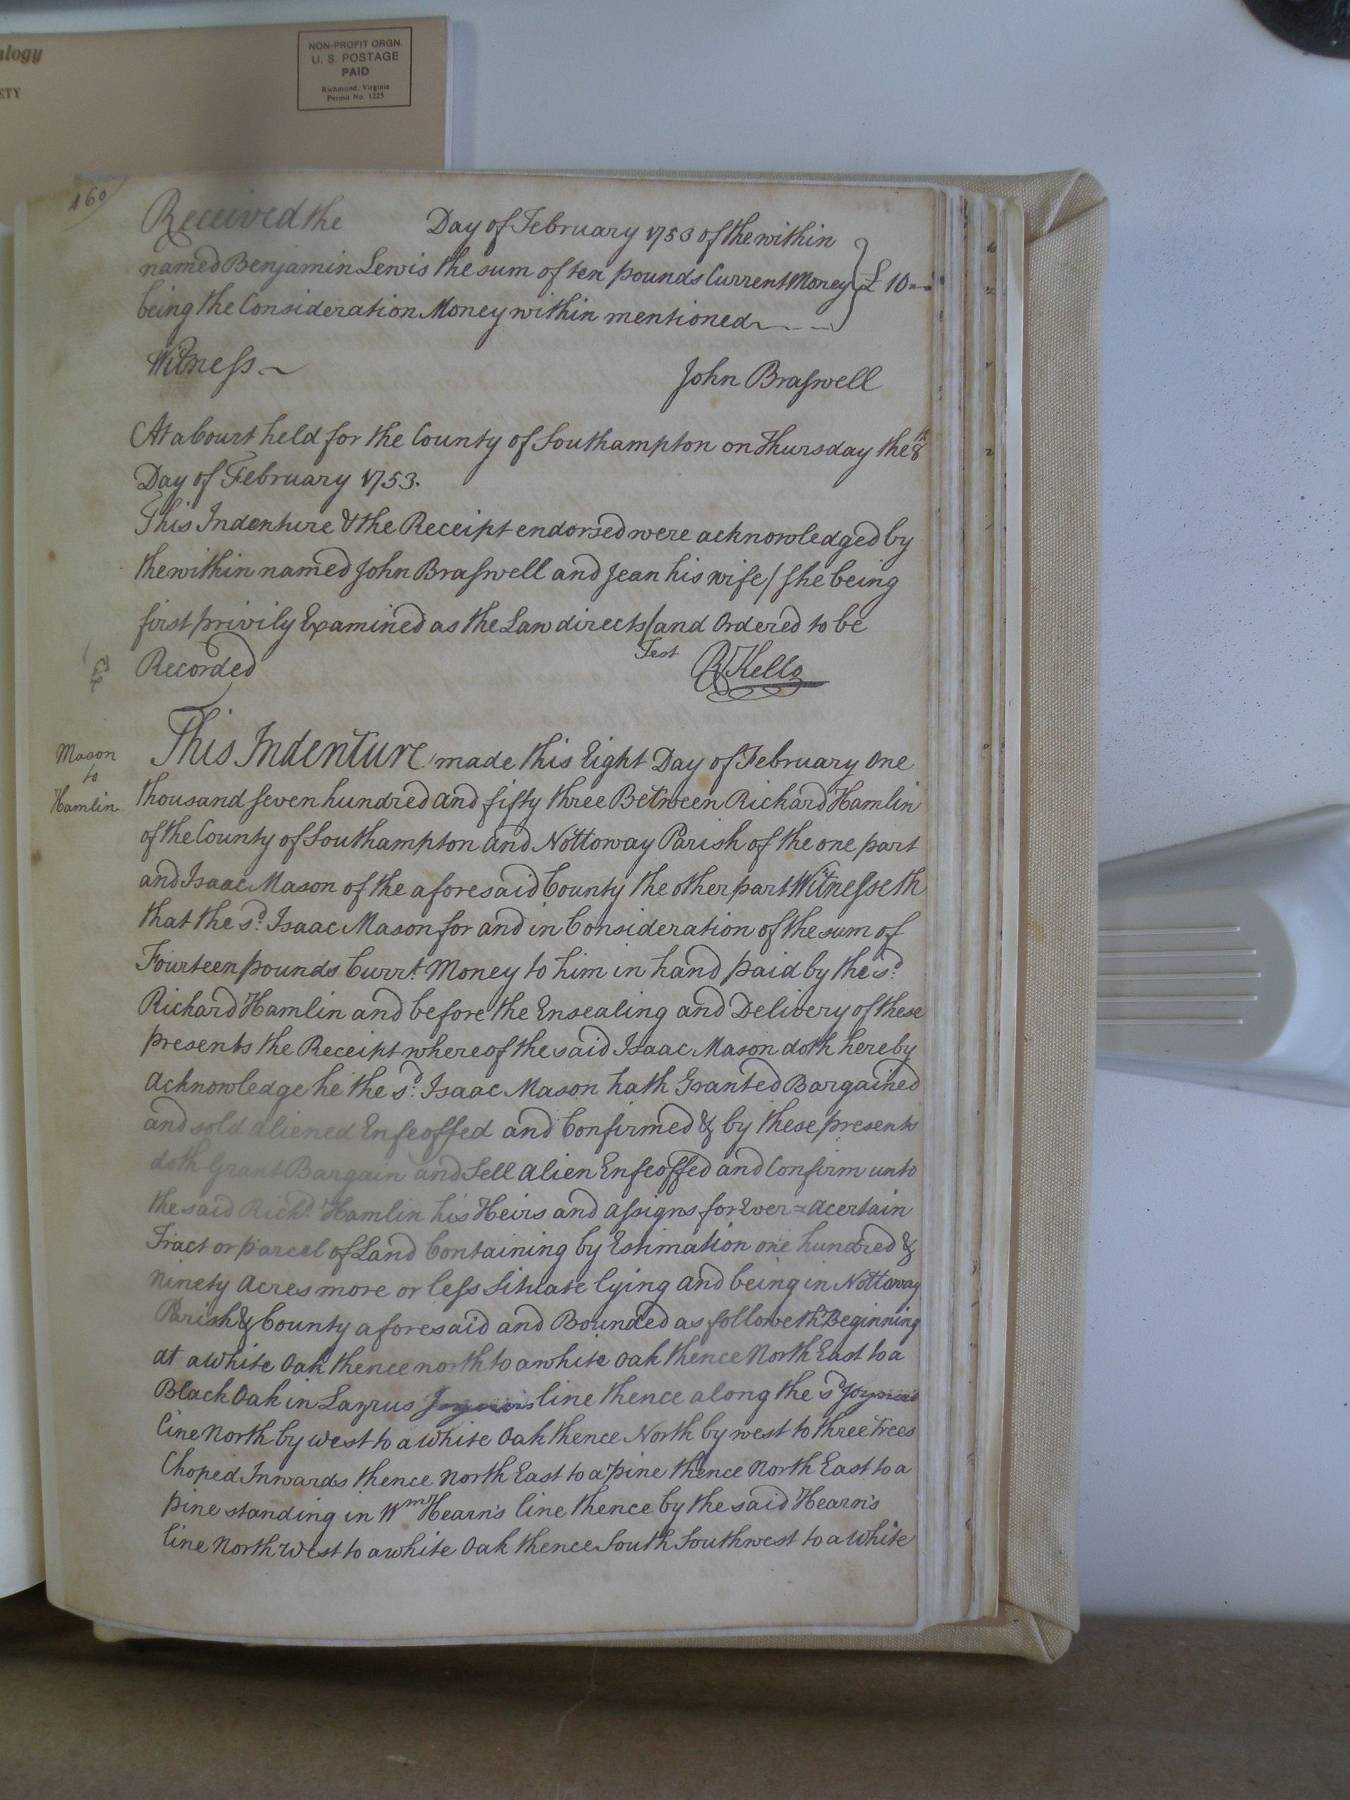 alogy
ETY
NON-PROFIT ORGN.
U. S. POSTAGE
PAID
Richmond, Virginia
Permit No. 1225
160
Received the Day of February 1753 of the within
named Benjamin Lewis the sum of ten pounds Current Money £ 10
being the Consideration Money within mentioned
Witness
John Braswell
At a Court held for the County of Southampton on Thursday the 8th
Day of February 1753.
This Indenture & the Receipt endorsed were acknowledged by
the within named John Braswell and Jean his wife / she being
first privily Examined as the Law directs / and Ordered to be
Recorded
Test RKello
Mason
to
Hamlin
This Indenture made this Eight Day of February One
thousand seven hundred and fifty three Between Richard Hamlin
of the County of Southampton and Nottoway Parish of the one part
and Isaac Mason of the aforesaid County the other part Witnesseth
that the sd. Isaac Mason for and in Consideration of the sum of
Fourteen pounds Currt. Money to him in hand paid by the sd.
Richard Hamlin and before the Ensealing and Delivery of these
presents the Receipt whereof the said Isaac Mason doth hereby
acknowledge he the sd. Isaac Mason hath Granted Bargained
and sold aliened Enfeoffed and Confirmed & by these presents
doth Grant Bargain and Sell alien Enfeoffed and Confirm unto
the said Richd. Hamlin his Heirs and assigns for Ever = a certain
Tract or parcel of Land Containing by Estimation one hundred &
ninety acres more or less situate lying and being in Nottoway
Parish & County aforesaid and Bounded as followeth Beginning
at a white Oak thence north to a white oak thence North East to a
Black Oak in Lazrus line thence along the sd
line North by west to a white Oak thence North by west to three Trees
Choped Inwards thence North East to a pine thence North East to a
pine standing in Wm Hearn's line thence by the said Hearn's
line North west to a white Oak thence South Southwest to a white